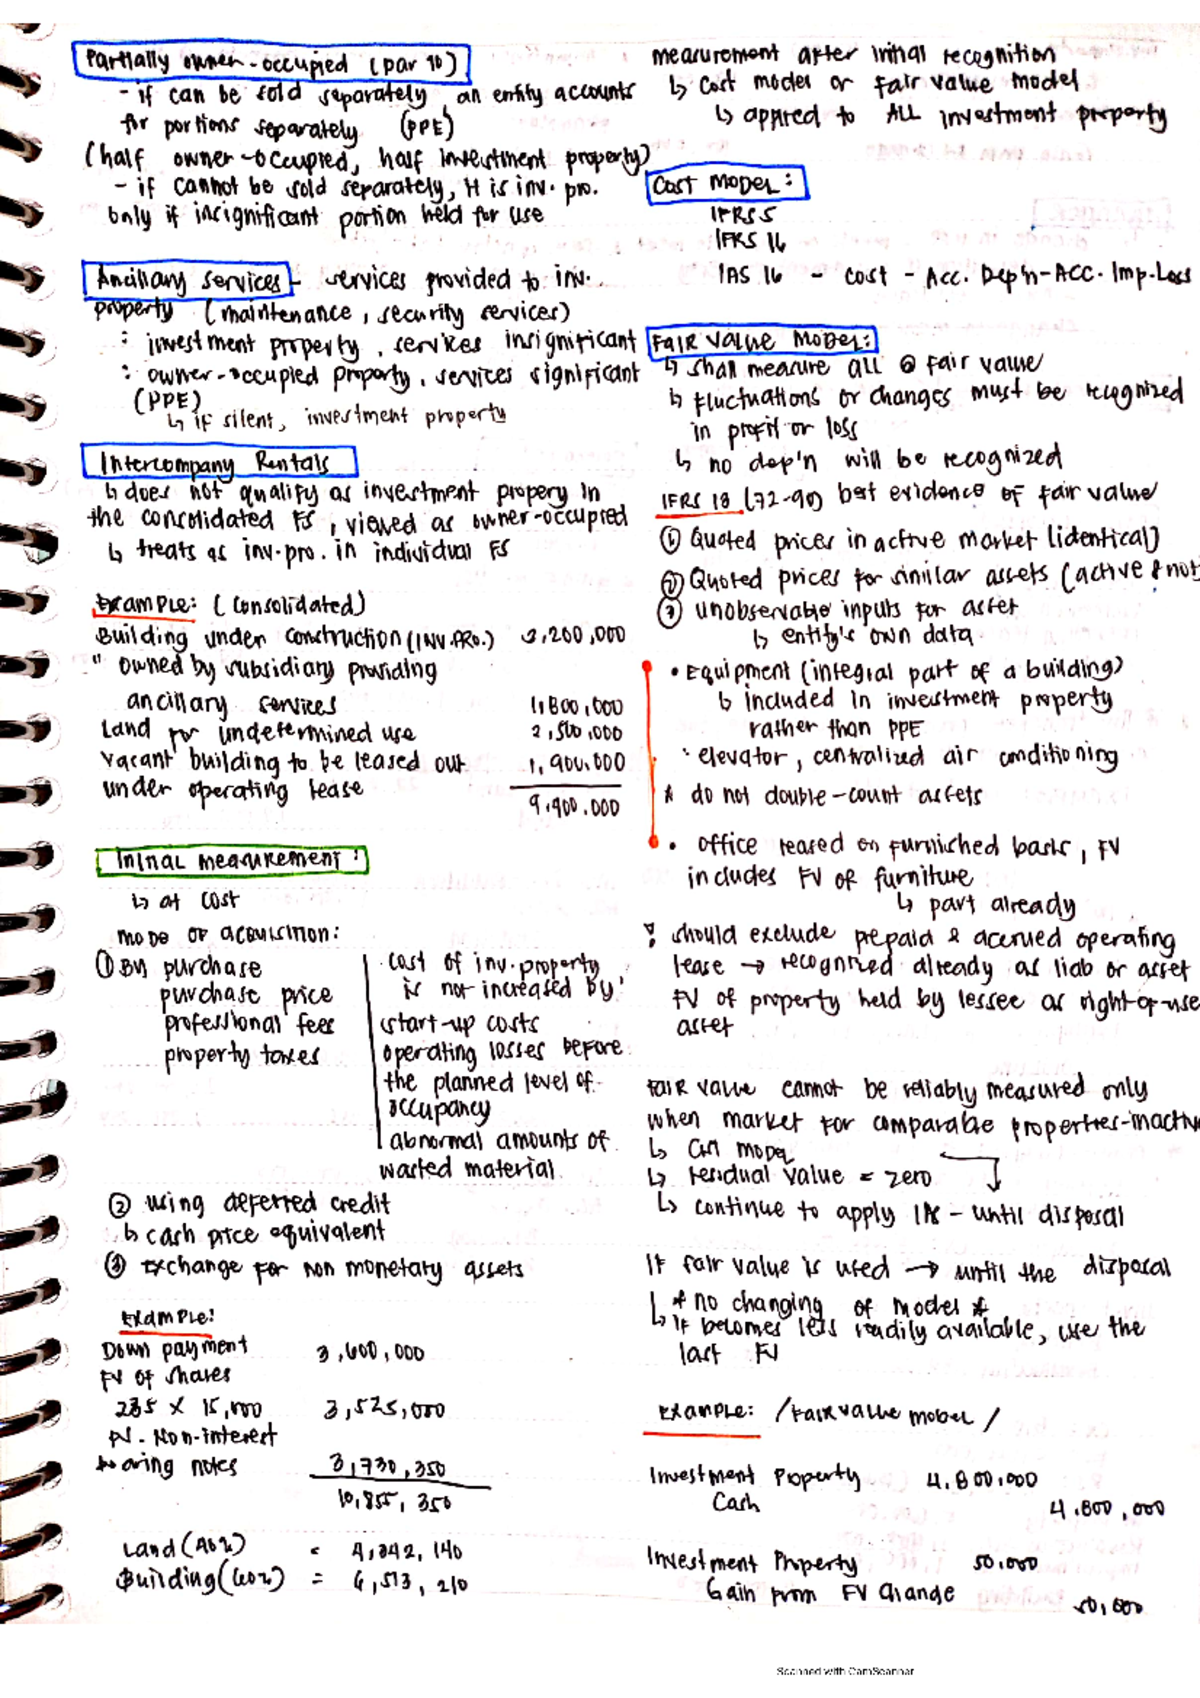 Partially owner-occupied (par 10)
- if can be sold separately, an entity accounts
for portions separately (PPE)
(half owner-occupied, half investment property)
- if cannot be sold separately, it is inv. pro.
only if insignificant portion held for use
Ancillary services - services provided to inv.
property (maintenance, security services)
: investment property, services insignificant
: owner-occupied property, services significant
(PPE)
↳ if silent, investment property
Intercompany Rentals
↳ does not qualify as investment propery in
the consolidated FS, viewed as owner-occupied
↳ treats as inv. pro. in individual FS
Example: (Consolidated)
Building under construction (INV. PRO.) 3,200,000
" owned by subsidiary providing
ancillary services 1,800,000
Land for undetermined use 2,500,000
Vacant building to be leased out 1,900,000
under operating lease
9,400,000
Initial measurement:
↳ at cost
mode of acquisition:
① By purchase
purchase price
professional fees
property taxes
cost of inv. property
is not increased by:
start-up costs
operating losses before
the planned level of
occupancy
abnormal amounts of
wasted material
② using deferred credit
↳ cash price equivalent
③ Exchange for non monetary assets
Example:
Down payment 3,600,000
FV of shares
235 x 15,000 3,525,000
PV. Non-interest
bearing notes 3,730,350
10,855,350
Land (40%) = 4,342,140
Building (60%) = 6,513,210
measurement after initial recognition
↳ Cost model or fair value model
↳ applied to ALL investment property
Cost Model:
IFRS 5
IFRS 16
IAS 16 - cost - Acc. Dep'n - ACC. Imp. Loss
Fair Value Model:
↳ shall measure all @ fair value
↳ fluctuations or changes must be recognized
in profit or loss
↳ no dep'n will be recognized
IFRS 13 (72-90) best evidence of fair value
① Quoted prices in active market (identical)
② Quoted prices for similar assets (active & not
③ unobservable inputs for asset
↳ entity's own data
• Equipment (integral part of a building)
↳ included in investment property
rather than PPE
: elevator, centralized air conditioning
* do not double-count assets
• office leased on furnished basis, FV
includes FV of furniture
↳ part already
should exclude prepaid & accrued operating
lease → recognized already as liab or asset
FV of property held by lessee as right-of-use
asset
Fair value cannot be reliably measured only
when market for comparable properties-inactive
↳ Cost model
↳ residual value = zero
↳ continue to apply IAS - until disposal
If fair value is used → until the disposal
↳ * no changing of model *
↳ if becomes less readily available, use the
last FV
Example: /Fair value model/
Investment Property 4,800,000
Cash 4,800,000
Investment Property 50,000
Gain from FV Change 50,000
Scanned with CamScanner